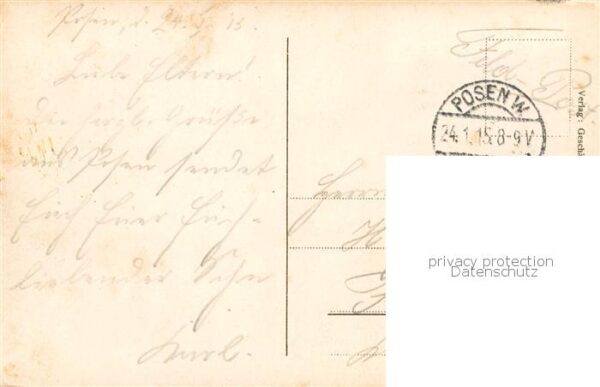 Posen, d. 24.1.15.
Liebe Eltern!
Die herzl. Grüße
aus Posen sendet
Euch Euer Euch
liebender Sohn
Karl.
Feld-Post
POSEN W.
24.1.15 8-9V
Verlag: Geschä
Herrn
privacy protection
Datenschutz